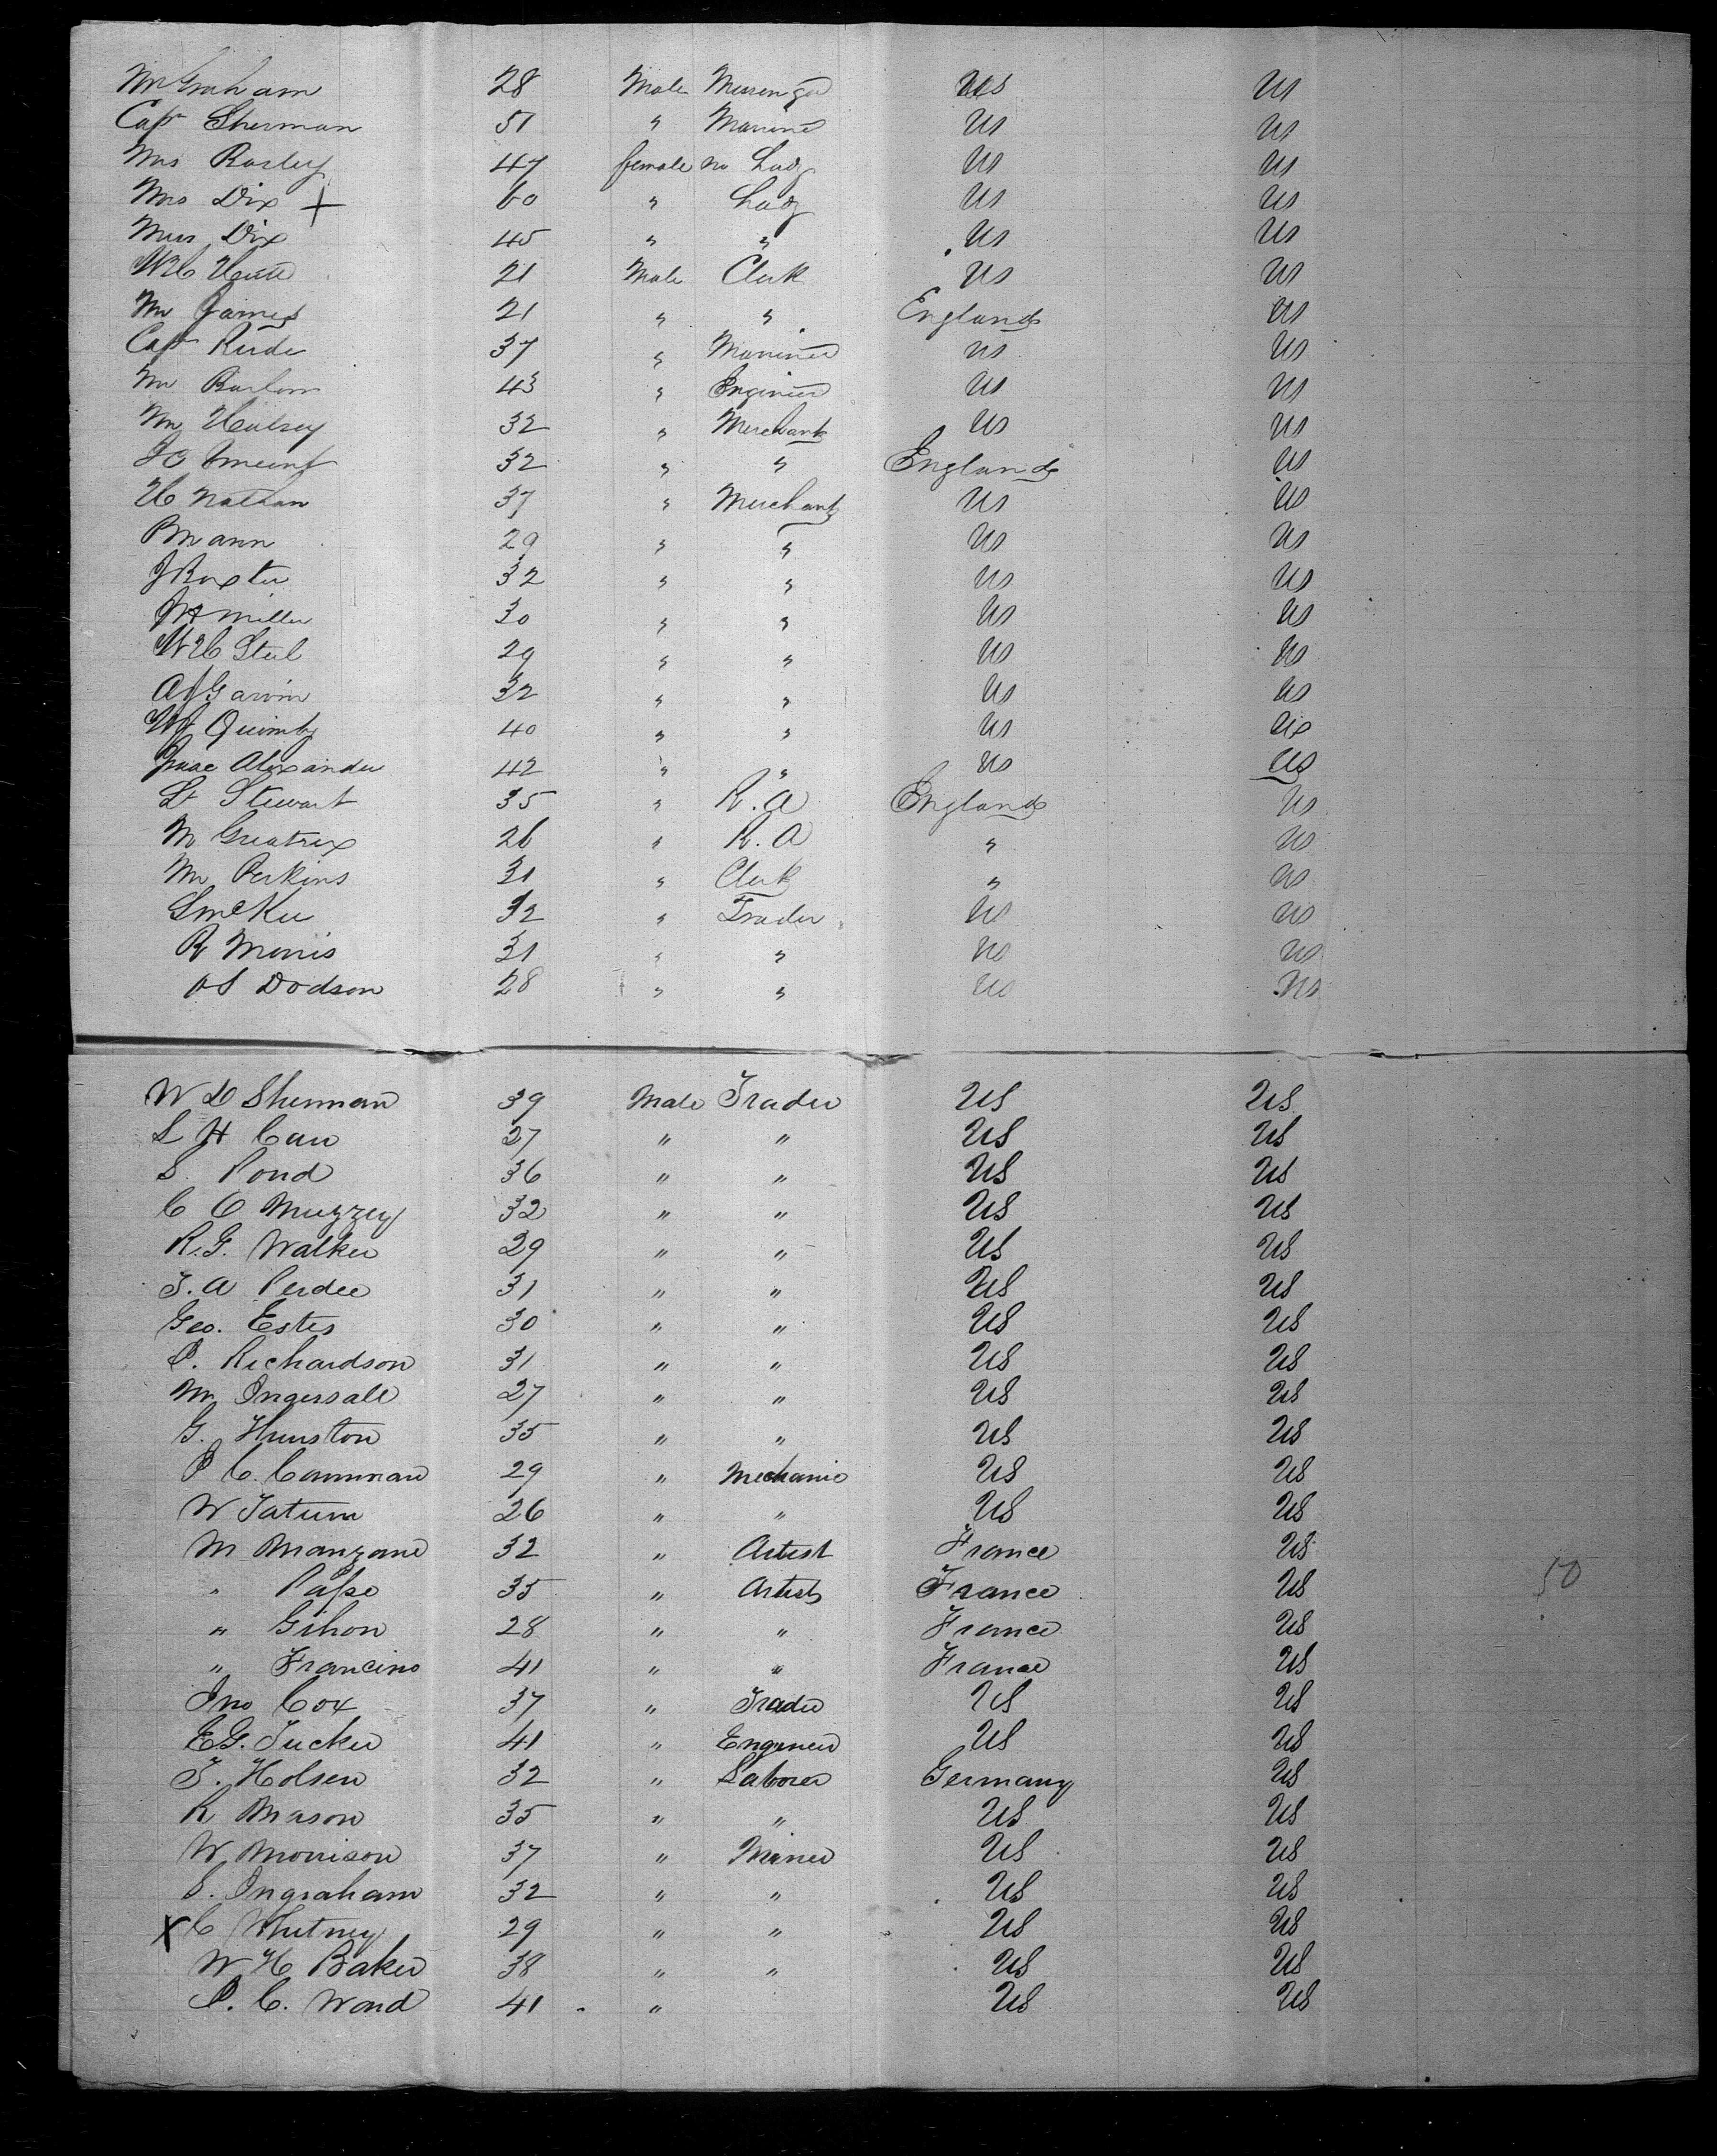 Mr Graham 28 Male Messenger US US
Capt Sherman 51 " Marine US US
Mrs Rosley 47 female no Lady US US
Mrs Dix + 60 " Lady US US
Miss Dix 45 " " US US
W H 21 Male Clerk US US
Mr James 21 " " England US
Capt 37 " Mariner US US
Mr Barlom 43 " Engineer US US
Mr Halsey 32 " Merchant US US
32 " " England US
H Nathan 37 " Merchant US US
B Mann 29 " " US US
J Baxter 32 " " US US
Miller 30 " " US US
W H Steel 29 " " US US
A J Garvin 32 " " US US
Quimby 40 " " US US
Isaac Alexander 42 " " US US
Lt Stewart 35 " R.A England US
M Greatrex 26 " R.A " US
Mr Perkins 31 " Clerk " US
S McKee 32 " Trader US US
R Morris 31 " " US US
Dodson 28 " " US US
W D Sherman 39 Male Trader US US
L H Carr 27 " " US US
S. Pond 36 " " US US
C O Muzzey 32 " " US US
R.G. Walker 29 " " US US
T. A Perdee 31 " " US US
Geo. Estes 30 " " US US
P. Richardson 31 " " US US
M Ingersall 27 " " US US
G. Hunston 35 " " US US
P C. Camman 29 " Mechanic US US
W Tatum 26 " " US US
M Manzane 32 " Artist France US
" Passe 35 " Artist France US 50
" Gihon 28 " " France US
" Francino 41 " " France US
Jno Cox 37 " Trader US US
E G. Tucker 41 " Engineer US US
T. Holsen 32 " Laborer Germany US
R Mason 35 " " US US
W Morrison 37 " Miner US US
S. Ingraham 32 " " US US
X C Whitney 29 " " US US
W H Baker 38 " " US US
P. C. Wood 41 " US US